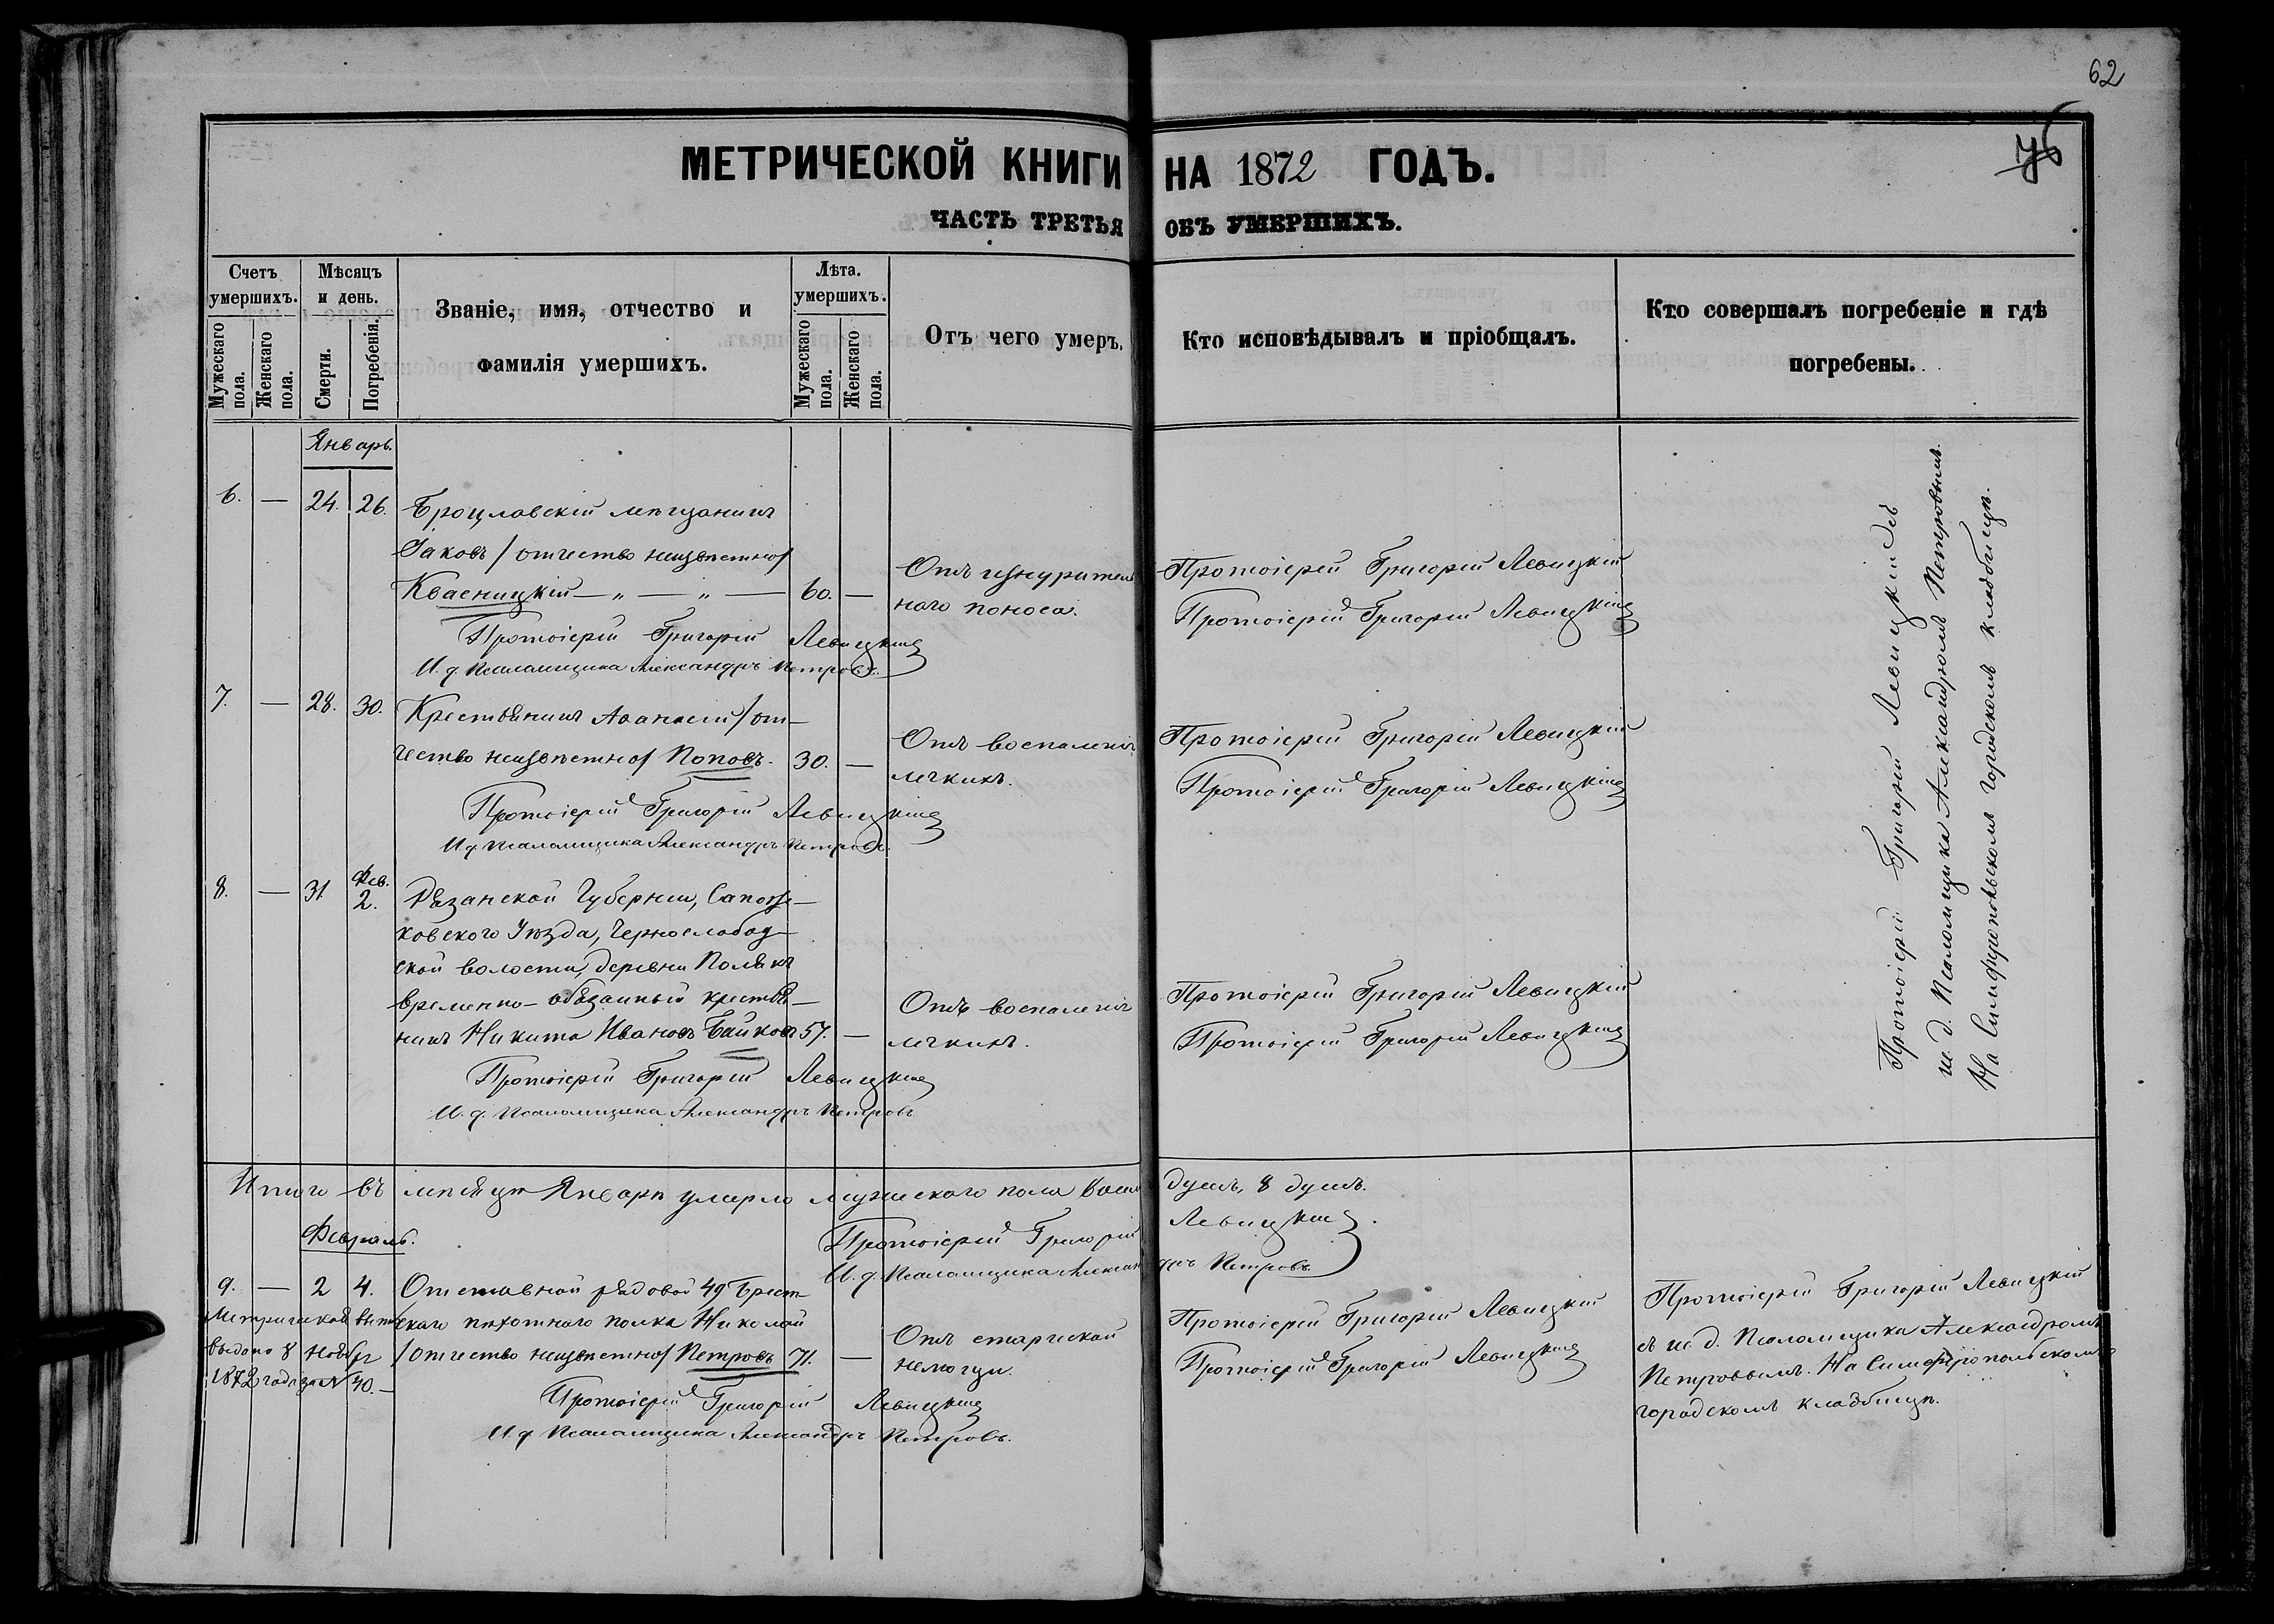 62
76
МЕТРИЧЕСКОЙ КНИГИ НА 1872 ГОДЪ.
ЧАСТЬ ТРЕТЬЯ ОБЪ УМЕРШИХЪ.
Счетъ умершихъ.
Мужескаго пола.
Женскаго пола.
Мѣсяцъ и день.
Смерти.
Погребенія.
Званіе, имя, отчество и
фамилія умершихъ.
Лѣта. умершихъ.
Мужескаго пола.
Женскаго пола.
Отъ чего умеръ.
Кто исповѣдывалъ и пріобщалъ.
Кто совершалъ погребеніе и гдѣ
погребены.
Январь.
6. — 24. 26. Броцлавскій мѣщанинъ
Іаковъ /отчество неизвѣстно/
Квасницкій — „ — „ — 60. —
Отъ изнурительнаго поноса.
Протоіерей Григорій Левицкій
Протоіерей Григорій Левицкій
Протоіерей Григорій Левицкій
И. д. Псаломщика Александръ Петровъ.
7. — 28. 30. Крестьянинъ Аѳанасій /от-
чество неизвѣстно/ Поповъ. 30. —
Отъ воспаленія
легкихъ.
Протоіерей Григорій Левицкій
Протоіерей Григорій Левицкій
Протоіерей Григорій Левицкій
И. д. Псаломщика Александръ Петровъ.
8. — 31 Фев. 2. Рязанской Губерніи, Сапож-
ковскаго Уѣзда, Чернослобод-
ской волости, деревни Полякъ
временно-обязанный крестья-
нинъ Никита Ивановъ Байковъ 57. —
Отъ воспаленія
легкихъ.
Протоіерей Григорій Левицкій
Протоіерей Григорій Левицкій
Протоіерей Григорій Левицкій
И. д. Псаломщика Александръ Петровъ
Протоіерей Григорій Левицкій съ
и. д. Псаломщика Александромъ Петровымъ.
На Симферопольскомъ городскомъ кладбищѣ.
Итого въ мѣсяцѣ Январѣ умерло мужескаго пола восемь душъ, 8 душъ.
Протоіерей Григорій Левицкій.
И. д. Псаломщика Александръ Петровъ
Февраль.
9. — 2 4. Отставной рядовой 49 Брест-
скаго пѣхотнаго полка Николай
/отчество неизвѣстно/ Петровъ 71. —
Метрическая вып.
выдана 8 Ноября
1872 года за № 40. —
Отъ старческой
немощи.
Протоіерей Григорій Левицкій
Протоіерей Григорій Левицкій
Протоіерей Григорій Левицкій
съ и. д. Псаломщика Александромъ
Петровымъ. На Симферопольскомъ
городскомъ кладбищѣ.
Протоіерей Григорій Левицкій
И. д. Псаломщика Александръ Петровъ.